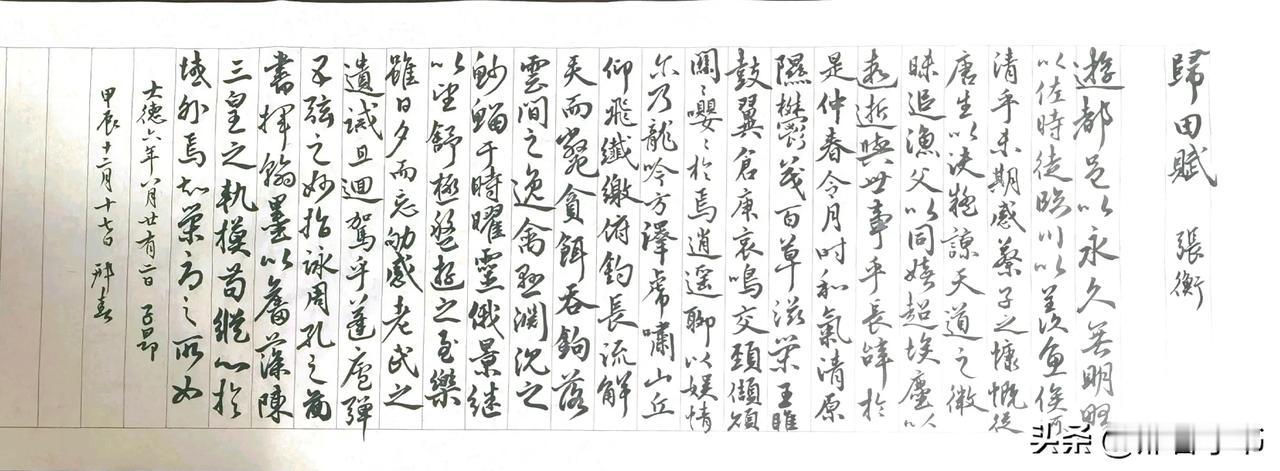 歸田賦 張衡
遊都邑以永久無明略
以佐時徒臨川以羨魚俟河
清乎未期感蔡子之慷慨從
唐生以決疑諒天道之微
昧追漁父以同嬉超埃塵以
遐逝與世事乎長辭於
是仲春令月時和氣清原
隰鬱茂百草滋榮王雎
鼓翼倉庚哀鳴交頸頡頏
關〻嚶〻於焉逍遙聊以娛情
尓乃龍吟方澤虎嘯山丘
仰飛纖繳俯釣長流觸
矢而斃貪餌吞鉤落
雲間之逸禽懸淵沉之
魦鰡于時曜靈俄景継
以望舒極盤遊之至樂
雖日夕而忘劬感老氏之
遺誡且迴駕乎蓬廬彈
五弦之妙指詠周孔之圖
書揮翰墨以奮藻陳
三皇之軌模苟縱心於
域外焉知榮辱之所如
大德六年八月廿有二日 子昂
甲辰十二月十七日 邢
头条 @